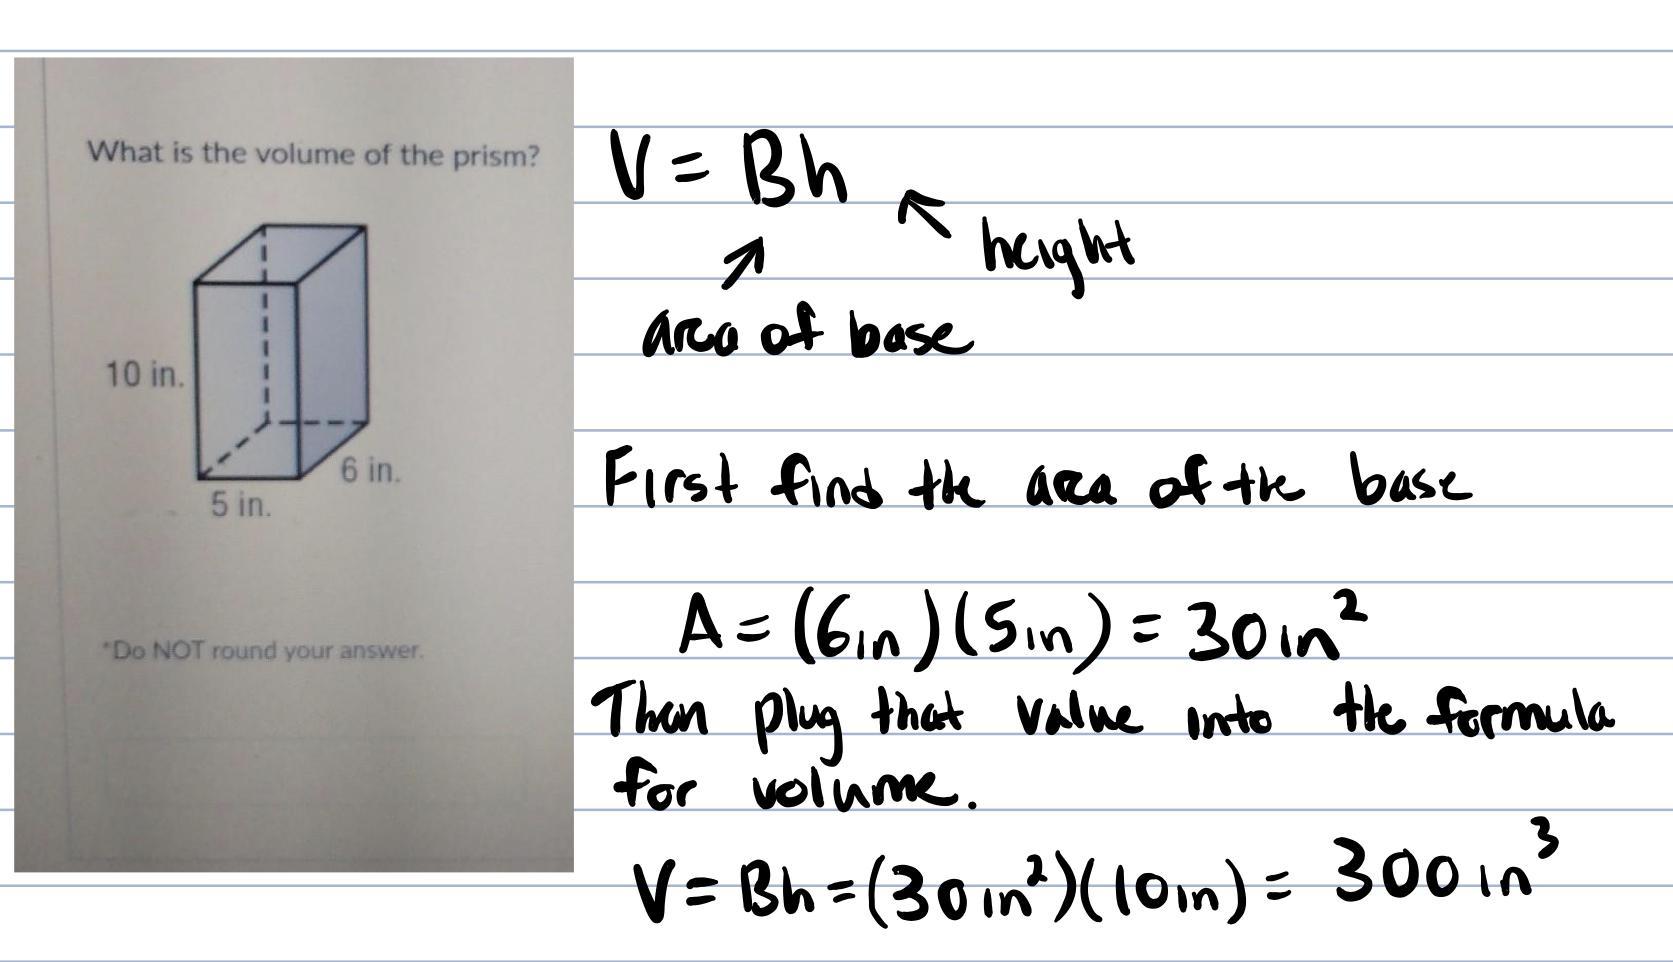 What is the volume of the prism?
10 in.
6 in.
5 in.
*Do NOT round your answer.
V = Bh
height
area of base
First find the area of the base
A = (6in)(5in) = 30in²
Then plug that value into the formula
for volume.
V = Bh = (30in²)(10in) = 300in³